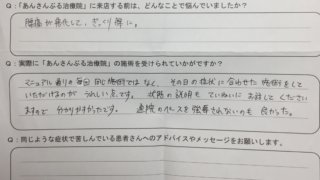 Q：「あんさんぶる治療院」に来店する前は、どんなことで悩んでいましたか？
腰痛が悪化して、ぎっくり腰に。
Q：実際に「あんさんぶる治療院」の施術を受けられていかがですか？
マニュアル通りの毎回同じ施術ではなく、その日の症状に合わせた施術をして
いただけるのが うれしい点です。 状態の説明も ていねいに お話して ください
ますので 分かりやすかったです。 通院のペースを強要されないのも 良かった。
Q：同じような症状で苦しんでいる患者さんへのアドバイスやメッセージをお願いします。